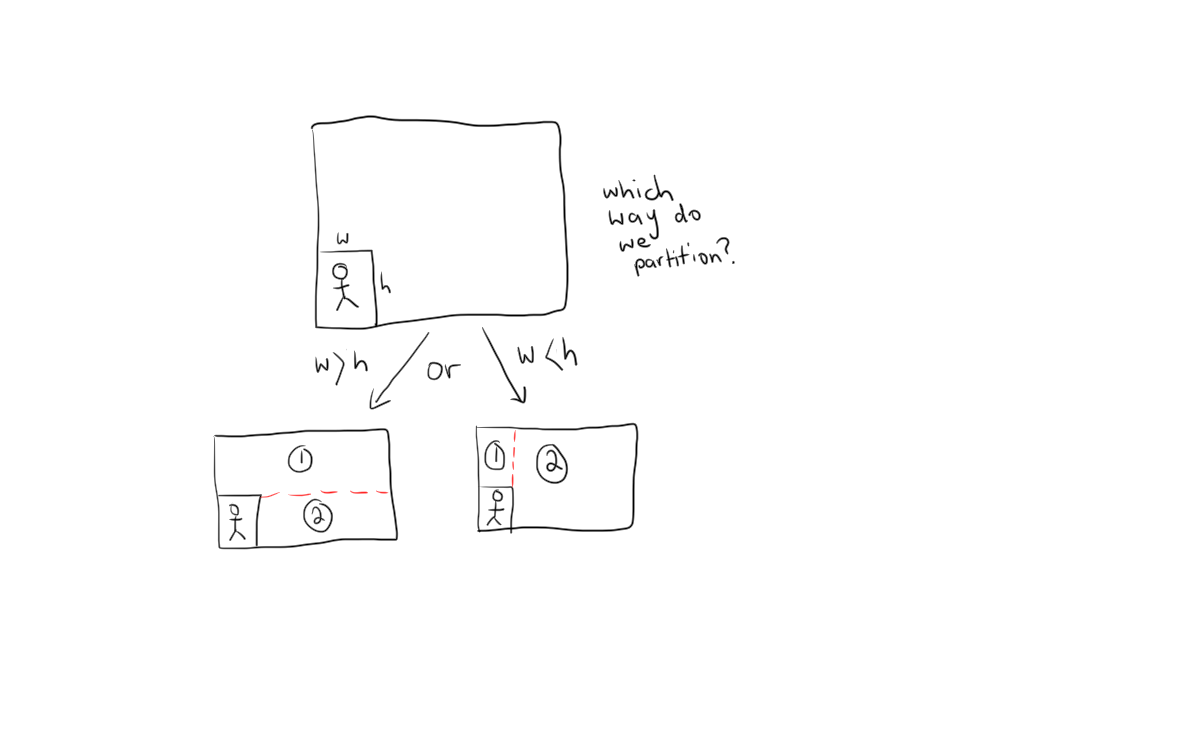 which
way do
we
partition?
w
h
w>h
or
w<h
①
②
①
②